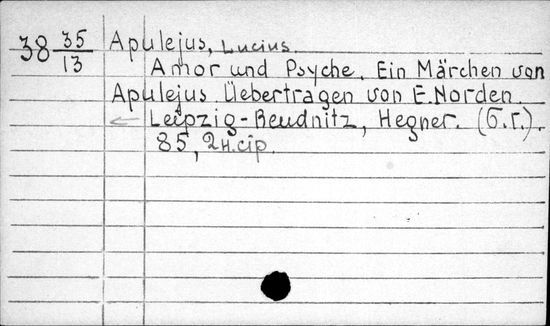 38 35/13 Apulejus, Lucius.
Amor und Psyche. Ein Märchen von
Apulejus Uebertragen von E. Norden.
← Leipzig-Reudnitz, Hegner. (б.г.).
85, 2 н. стр.